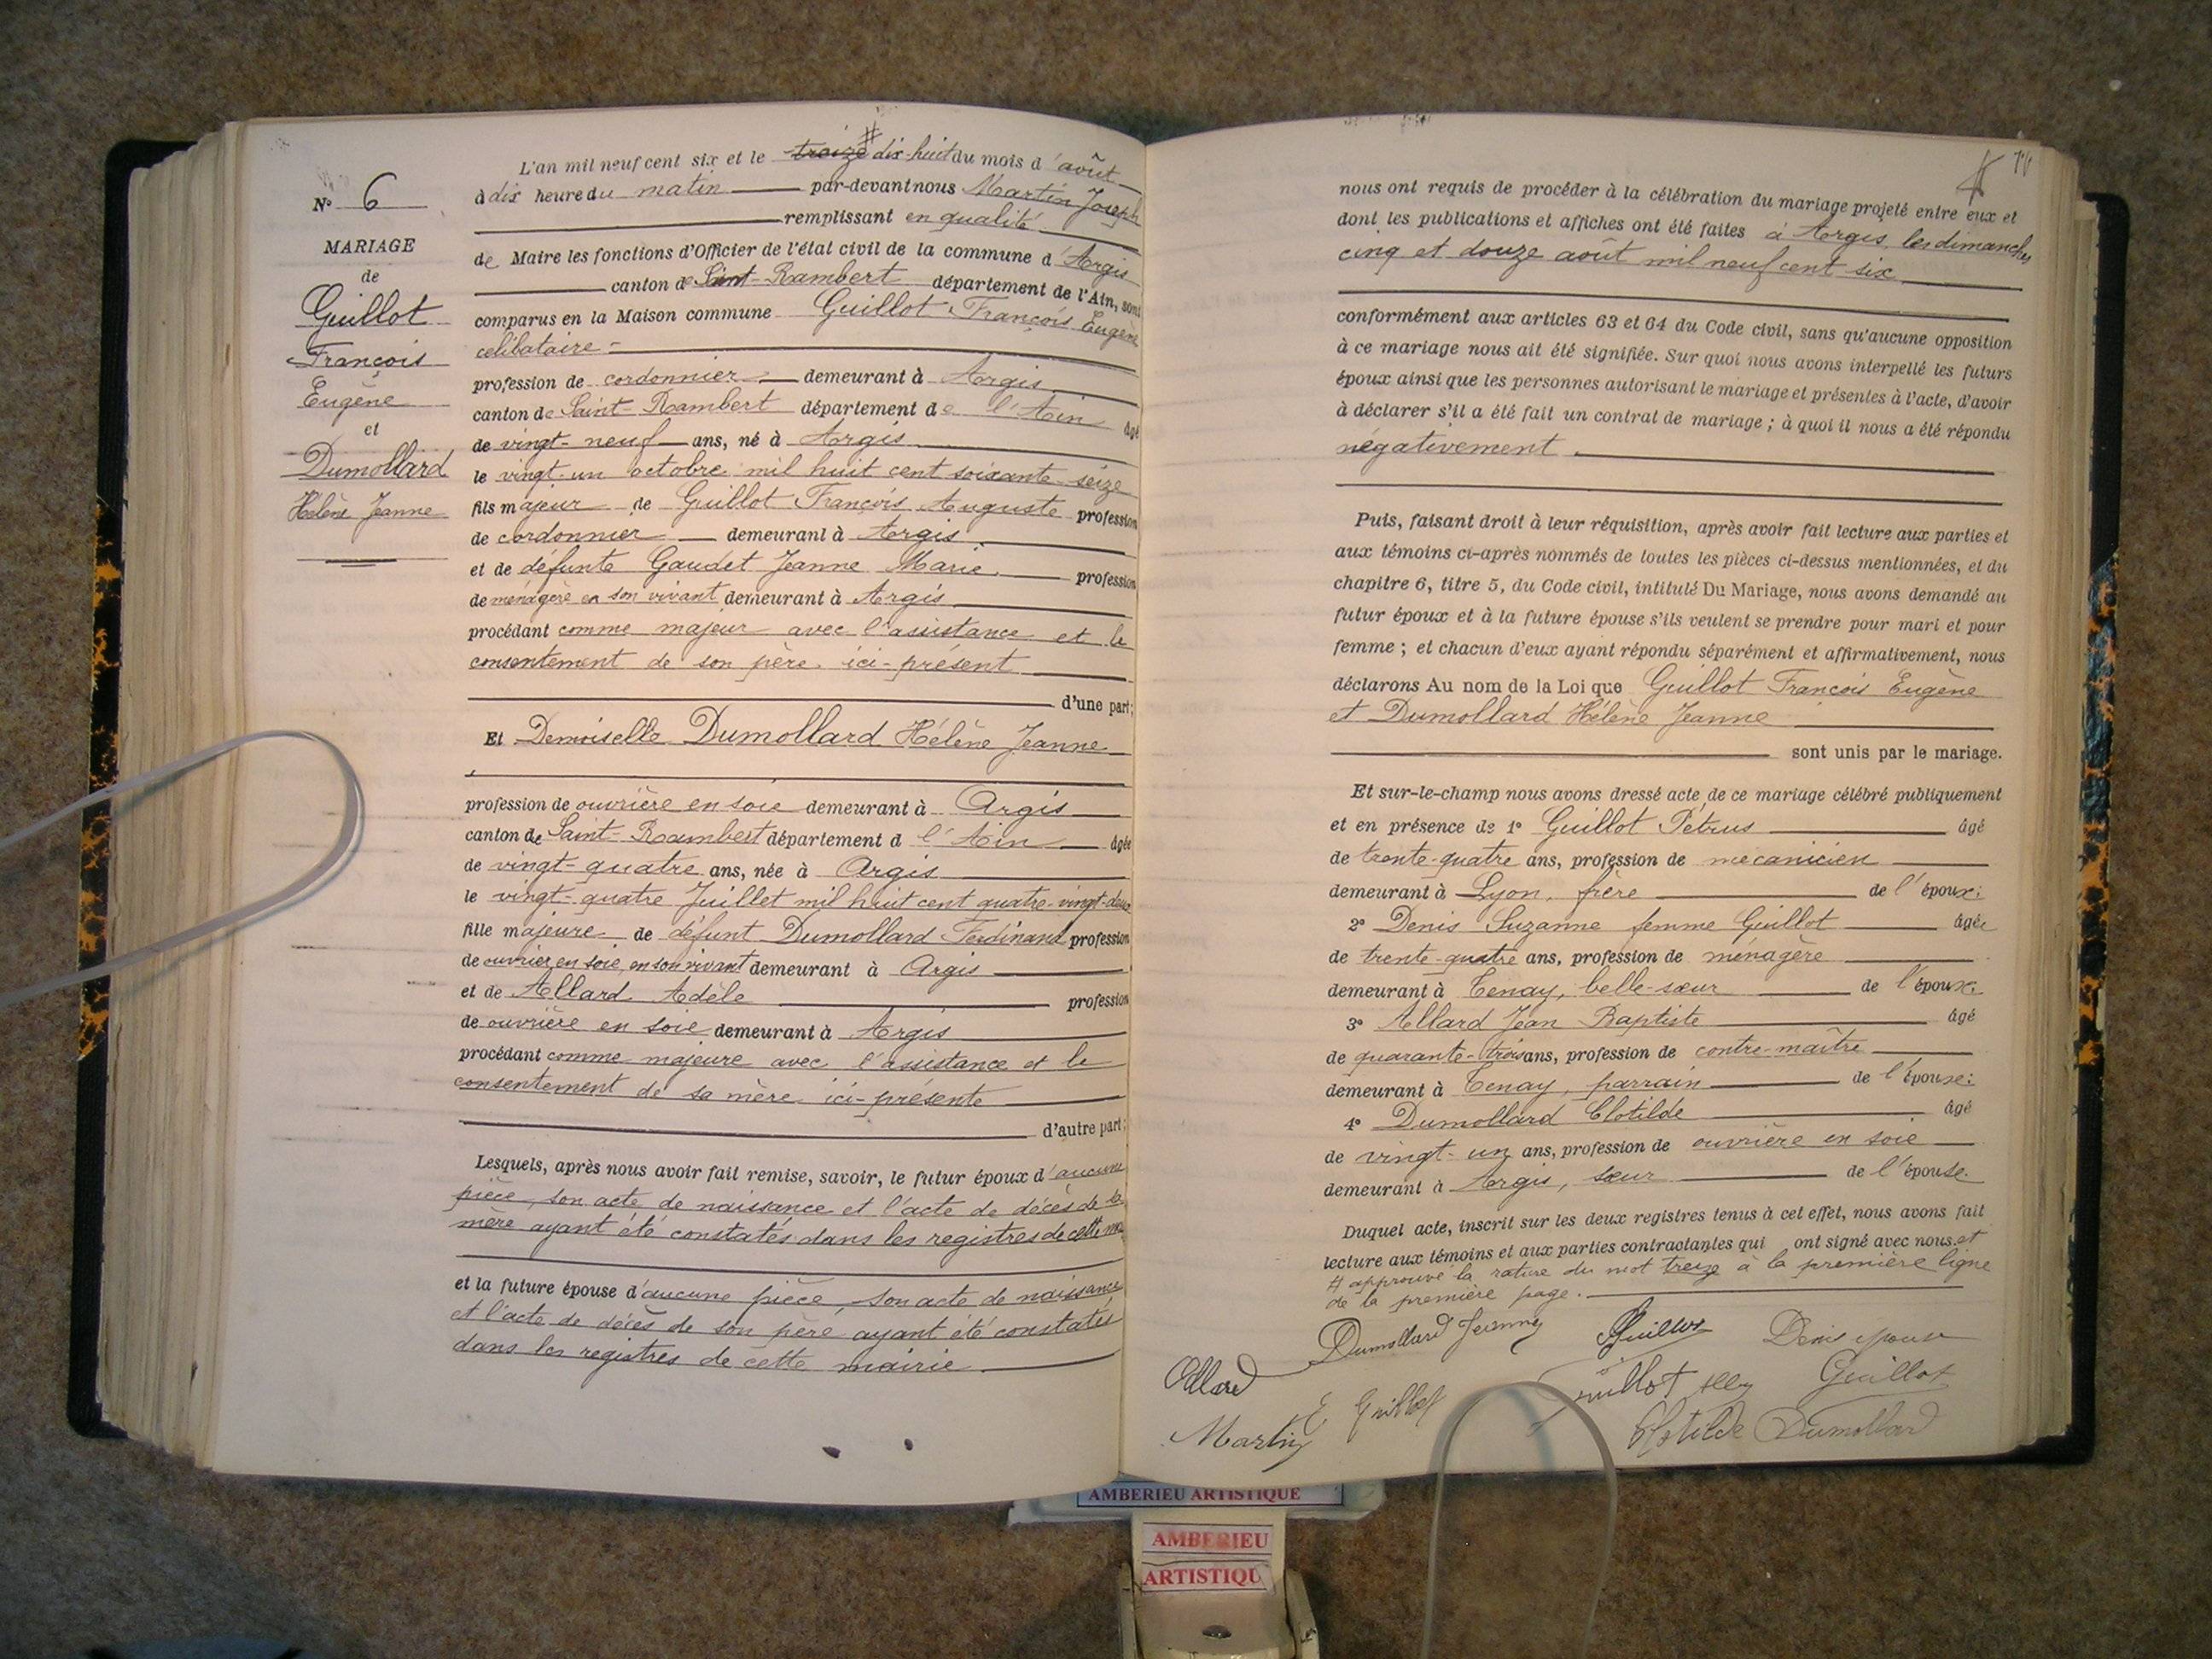 N° 6
MARIAGE
de
Guillot
François
Eugène
et
Dumollard
Hélène Jeanne
L'an mil neuf cent six et le treize # dix-huit du mois d'août
à dix heure du matin par-devant nous Martin Joseph
remplissant en qualité
de Maire les fonctions d'Officier de l'état civil de la commune d'Argis
canton de Saint-Rambert département de l'Ain, sont
comparus en la Maison commune Guillot François Eugène
célibataire
profession de cordonnier demeurant à Argis
canton de Saint-Rambert département de l'Ain âgé
de vingt-neuf ans, né à Argis
le vingt-un octobre mil huit cent soixante-seize
fils majeur de Guillot François Auguste profession
de cordonnier demeurant à Argis
et de défunte Gaudet Jeanne Marie profession
de ménagère en son vivant demeurant à Argis
procédant comme majeur avec l'assistance et le
consentement de son père ici-présent
d'une part;
Et Demoiselle Dumollard Hélène Jeanne
profession de ouvrière en soie demeurant à Argis
canton de Saint-Rambert département d l'Ain âgée
de vingt-quatre ans, née à Argis
le vingt-quatre Juillet mil huit cent quatre-vingt-deux
fille majeure de défunt Dumollard Ferdinand profession
de ouvrier en soie, en son vivant demeurant à Argis
et de Allard Adèle profession
de ouvrière en soie demeurant à Argis
procédant comme majeure avec l'assistance et le
consentement de sa mère ici-présente
d'autre part;
Lesquels, après nous avoir fait remise, savoir, le futur époux d'aucune
pièce, son acte de naissance et l'acte de décès de sa
mère ayant été constatés dans les registres de cette
et la future épouse d'aucune pièce, son acte de naissance
et l'acte de décès de son père ayant été constatés
dans les registres de cette mairie.
nous ont requis de procéder à la célébration du mariage projeté entre eux et
dont les publications et affiches ont été faites à Argis, les dimanches
cinq et douze août mil neuf cent six
conformément aux articles 63 et 64 du Code civil, sans qu'aucune opposition
à ce mariage nous ait été signifiée. Sur quoi nous avons interpellé les futurs
époux ainsi que les personnes autorisant le mariage et présentes à l'acte, d'avoir
à déclarer s'il a été fait un contrat de mariage ; à quoi il nous a été répondu
négativement.
Puis, faisant droit à leur réquisition, après avoir fait lecture aux parties et
aux témoins ci-après nommés de toutes les pièces ci-dessus mentionnées, et du
chapitre 6, titre 5, du Code civil, intitulé Du Mariage, nous avons demandé au
futur époux et à la future épouse s'ils veulent se prendre pour mari et pour
femme ; et chacun d'eux ayant répondu séparément et affirmativement, nous
déclarons Au nom de la Loi que Guillot François Eugène
et Dumollard Hélène Jeanne
sont unis par le mariage.
Et sur-le-champ nous avons dressé acte de ce mariage célébré publiquement
et en présence de 1° Guillot Pétrus âgé
de trente-quatre ans, profession de mécanicien
demeurant à Lyon, frère de l'époux;
2° Denis Suzanne femme Guillot âgée
de trente-quatre ans, profession de ménagère
demeurant à Tenay, belle-sœur de l'époux;
3° Allard Jean Baptiste âgé
de quarante-trois ans, profession de contre-maître
demeurant à Tenay, parrain de l'épouse;
4° Dumollard Clotilde âgé
de vingt-un ans, profession de ouvrière en soie
demeurant à Argis, sœur de l'épouse.
Duquel acte, inscrit sur les deux registres tenus à cet effet, nous avons fait
lecture aux témoins et aux parties contractantes qui ont signé avec nous et
# approuvé la rature du mot treize à la première ligne
de la première page.
Dumollard Jeanne Guillot Denis épouse
Allard E Guillot Guillot Guillot
Martin Clotilde Dumollard
AMBERIEU ARTISTIQUE
AMBERIEU
ARTISTIQU